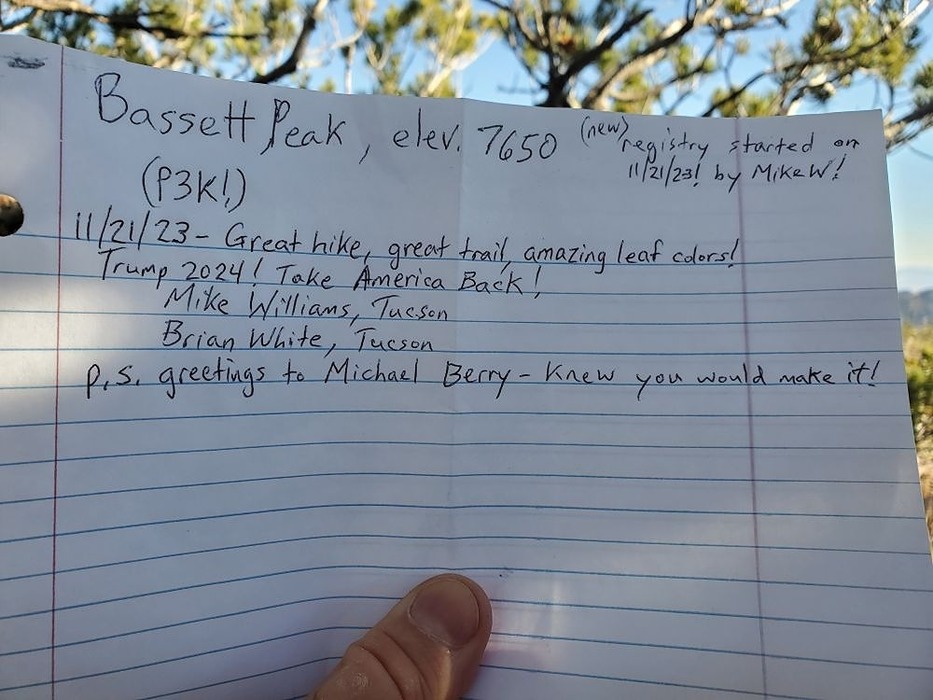 Bassett Peak, elev. 7650 (new) registry started on
11/21/23! by Mike W!
(P3K!)
11/21/23 - Great hike, great trail, amazing leaf colors!
Trump 2024! Take America Back!
Mike Williams, Tucson
Brian White, Tucson
p.s. greetings to Michael Berry - Knew you would make it!